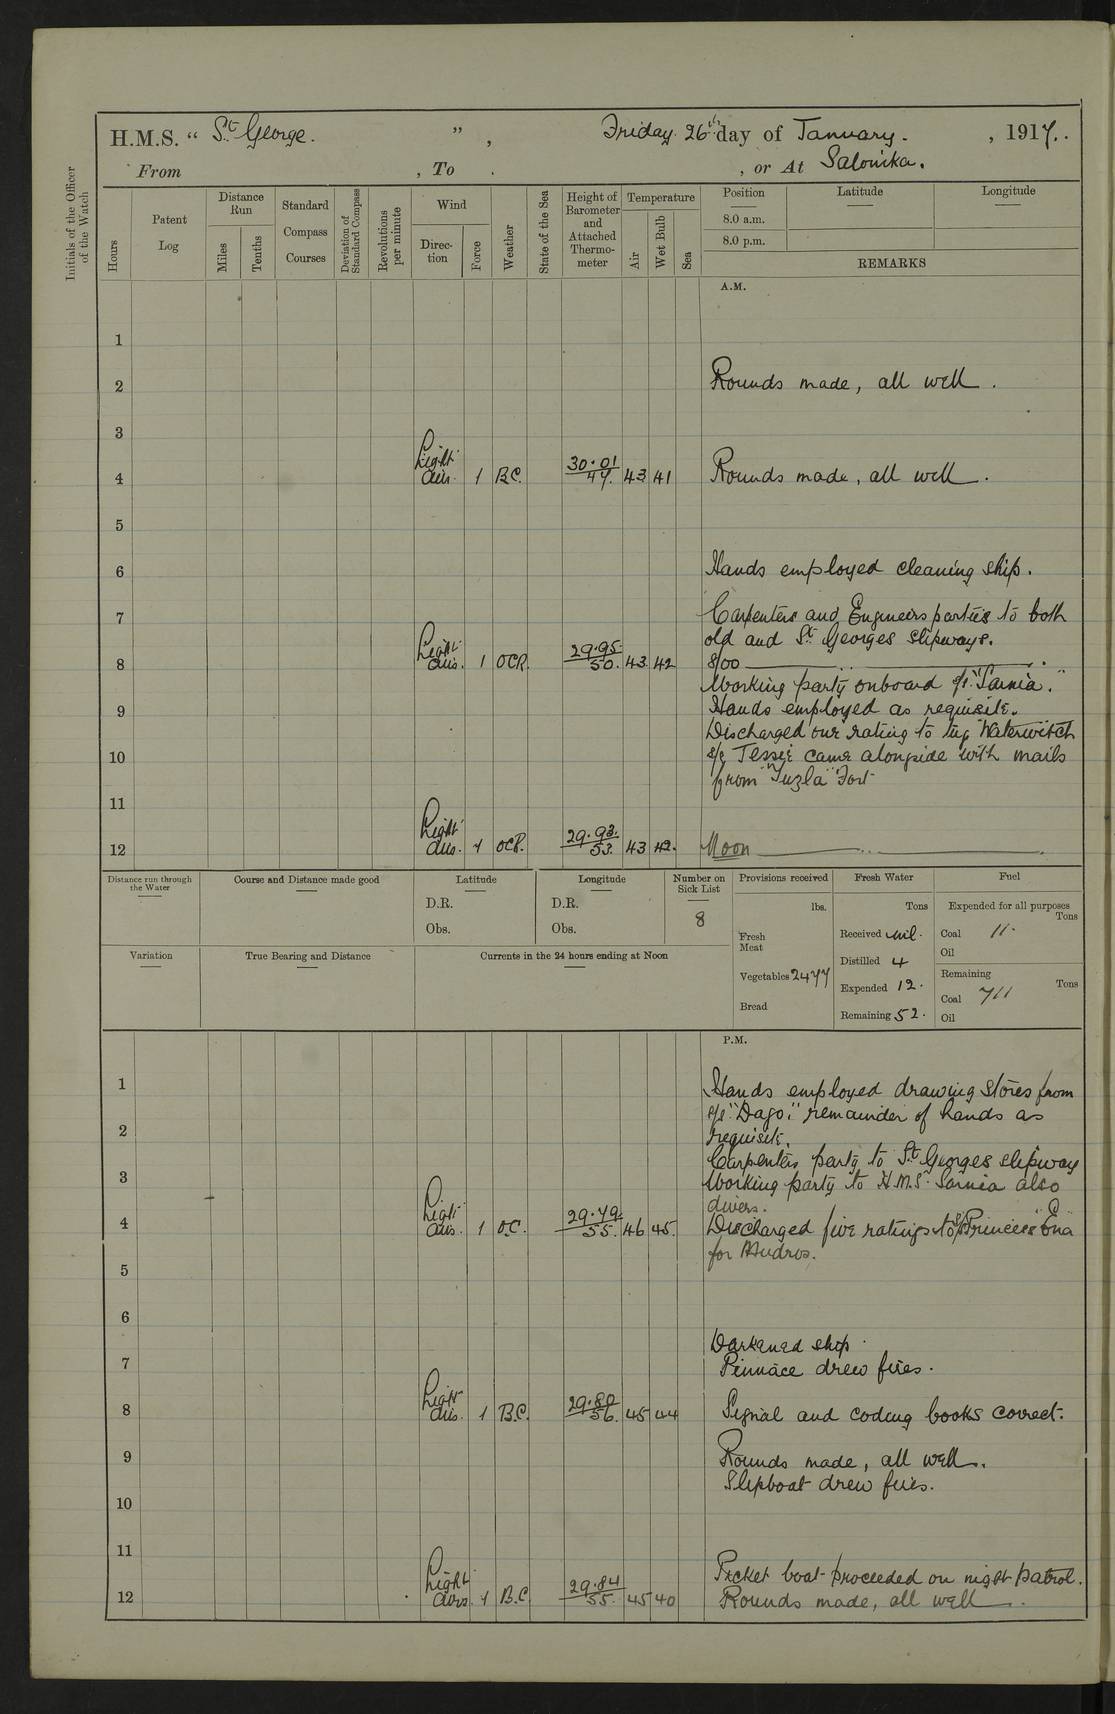 H.M.S. " St. George. ", Friday 26th day of January. , 1917.
From , To . , or At Salonika.
Initials of the Officer of the Watch
Hours
Patent Log
Distance Run
Miles
Tenths
Standard Compass Courses
Deviation of Standard Compass
Revolutions per minute
Wind
Direction
Force
Weather
State of the Sea
Height of Barometer and Attached Thermometer
Temperature
Air
Wet Bulb
Sea
Position
8.0 a.m.
8.0 p.m.
Latitude
Longitude
REMARKS
A.M.
1
2 Rounds made, all well.
3
4 Light airs. 1 B.C. 30.01 47. 43 41 Rounds made, all well.
5
6 Hands employed cleaning ship.
7 Carpenters and Engineers parties to both
old and St. Georges slipways.
8 Light airs. 1 OCR. 29.95 50. 43. 42 8/00
Working party onboard s/s "Sarnia."
9 Hands employed as requisite.
Discharged our rating to tug Waterwitch
10 s/s Tessie came alongside with mails
from "Tuzla" Fort
11
12 Light airs. 1 OCR. 29.93. 53. 43 42. Noon
Distance run through the Water
Course and Distance made good
Latitude
D.R.
Obs.
Longitude
D.R.
Obs.
Number on Sick List
8
Provisions received
lbs.
Fresh Meat
Vegetables 2477
Bread
Fresh Water
Tons
Received nil.
Distilled 4
Expended 12.
Remaining 52.
Fuel
Expended for all purposes
Tons
Coal 11.
Oil
Remaining
Tons
Coal 711
Oil
Variation
True Bearing and Distance
Currents in the 24 hours ending at Noon
P.M.
1 Hands employed drawing stores from
s/s "Dago," remainder of hands as
2 requisite.
Carpenters party to St. Georges slipway
3 Working party to H.M.S. Sarnia also
divers.
4 Light airs. 1 O.C. 29.79. 55. 46 45. Discharged five ratings to s/s "Princess Ena"
for Mudros.
5
6
Darkened ship.
7 Pinnace drew fires.
8 Light airs. 1 B.C. 29.80 56. 45 44 Signal and coding books correct.
9 Rounds made, all well.
Slipboat drew fires.
10
11
Picket boat proceeded on night patrol.
12 Light airs. 1 B.C. 29.84 55. 45 40 Rounds made, all well.